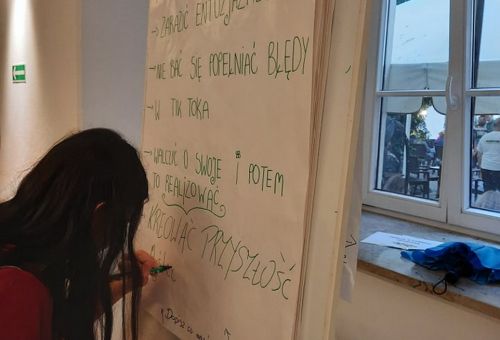 → ZARAZIĆ ENTUZJAZMEM
→ NIE BAĆ SIĘ POPEŁNIAĆ BŁĘDY
→ W TIK TOKA
→ WALCZYĆ O SWOJE i POTEM
TO REALIZOWAĆ
KREOWAĆ PRZYSZŁOŚĆ